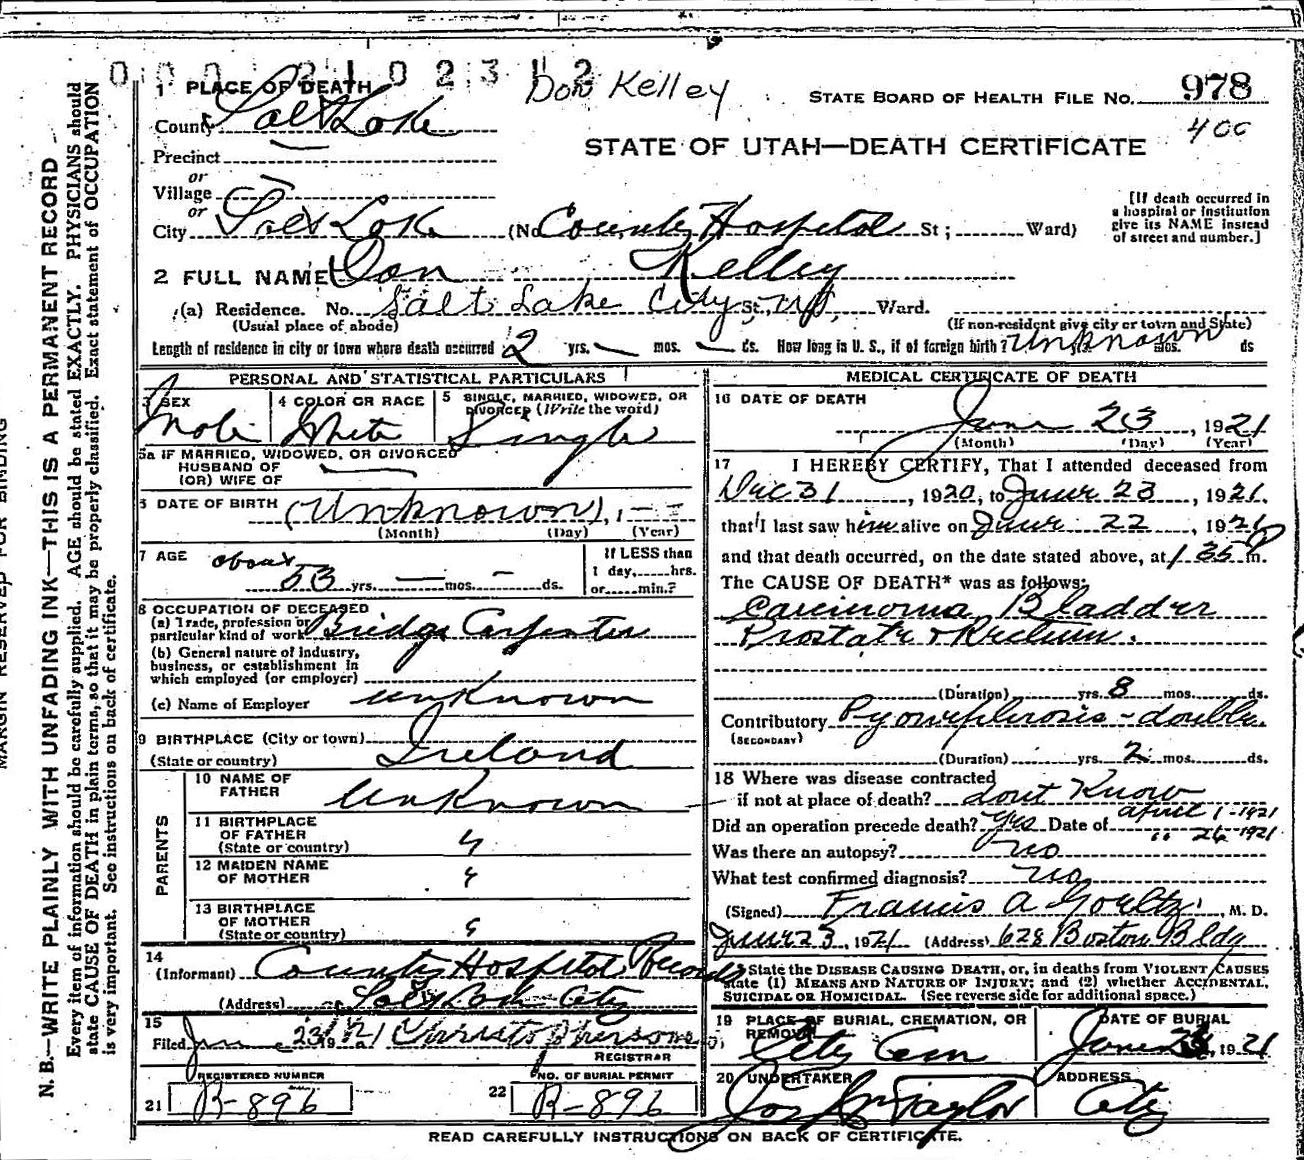 0 0 0 2 1 0 2 3 1 2
Don Kelley
STATE BOARD OF HEALTH FILE NO. 978
400
STATE OF UTAH—DEATH CERTIFICATE
1 PLACE OF DEATH
County Salt Lake
Precinct
or
Village
or
City Salt Lake (No. County Hospital St; Ward)
[If death occurred in
a hospital or institution
give its NAME instead
of street and number.]
2 FULL NAME Don Kelley
(a) Residence. No. Salt Lake City St., Ut, Ward.
(Usual place of abode) (If non-resident give city or town and State)
Length of residence in city or town where death occurred 2 yrs. — mos. — ds. How long in U. S., if of foreign birth? Unknown yrs. mos. ds
PERSONAL AND STATISTICAL PARTICULARS
3 SEX Male
4 COLOR OR RACE White
5 SINGLE, MARRIED, WIDOWED, OR
DIVORCED (Write the word) Single
5a IF MARRIED, WIDOWED, OR DIVORCED
HUSBAND OF
(OR) WIFE OF —
6 DATE OF BIRTH (Unknown), 1 - -
(Month) (Day) (Year)
7 AGE about
53 yrs. — mos. - ds.
If LESS than
1 day,.....hrs.
or.....min.?
8 OCCUPATION OF DECEASED
(a) Trade, profession or
particular kind of work Bridge Carpenter
(b) General nature of industry,
business, or establishment in
which employed (or employer)
(c) Name of Employer unknown
9 BIRTHPLACE (City or town)
(State or country) Ireland
PARENTS
10 NAME OF
FATHER Unknown
11 BIRTHPLACE
OF FATHER
(State or country) "
12 MAIDEN NAME
OF MOTHER "
13 BIRTHPLACE
OF MOTHER
(State or country) "
14
(Informant) County Hospital Records
(Address) Salt Lake City
15
Filed June 23 1921 Christophersons
REGISTRAR
REGISTERED NUMBER
21 B-896
NO. OF BURIAL PERMIT
22 B-896
MEDICAL CERTIFICATE OF DEATH
16 DATE OF DEATH
June 23, 1921
(Month) (Day) (Year)
17 I HEREBY CERTIFY, That I attended deceased from
Dec 31, 1920, to June 23, 1921.
that I last saw him alive on June 22, 1921
and that death occurred, on the date stated above, at 1 35 P m.
The CAUSE OF DEATH* was as follows:
Carcinoma Bladder
Prostate & Rectum.
(Duration) yrs. 8 mos. ds.
Contributory Pyonephrosis - double.
(SECONDARY)
(Duration) yrs. 2 mos. ds.
18 Where was disease contracted
if not at place of death? dont Know
Did an operation precede death? yes Date of april 1-1921
" 26 1921
Was there an autopsy? no
What test confirmed diagnosis? no
(Signed) Francis A Goeltz, M. D.
June 23, 1921 (Address) 628 Boston Bldg
*State the DISEASE CAUSING DEATH, or, in deaths from VIOLENT CAUSES
state (1) MEANS AND NATURE OF INJURY; and (2) whether ACCIDENTAL,
SUICIDAL OR HOMICIDAL. (See reverse side for additional space.)
19 PLACE OF BURIAL, CREMATION, OR
REMOVAL City Cem
DATE OF BURIAL
June, 1921
20 UNDERTAKER
Jos Wm Taylor
ADDRESS
City
READ CAREFULLY INSTRUCTIONS ON BACK OF CERTIFICATE.
MARGIN RESERVED FOR BINDING
N. B.—WRITE PLAINLY WITH UNFADING INK—THIS IS A PERMANENT RECORD
Every item of information should be carefully supplied. AGE should be stated EXACTLY. PHYSICIANS should
state CAUSE OF DEATH in plain terms, so that it may be properly classified. Exact statement of OCCUPATION
is very important. See instructions on back of certificate.